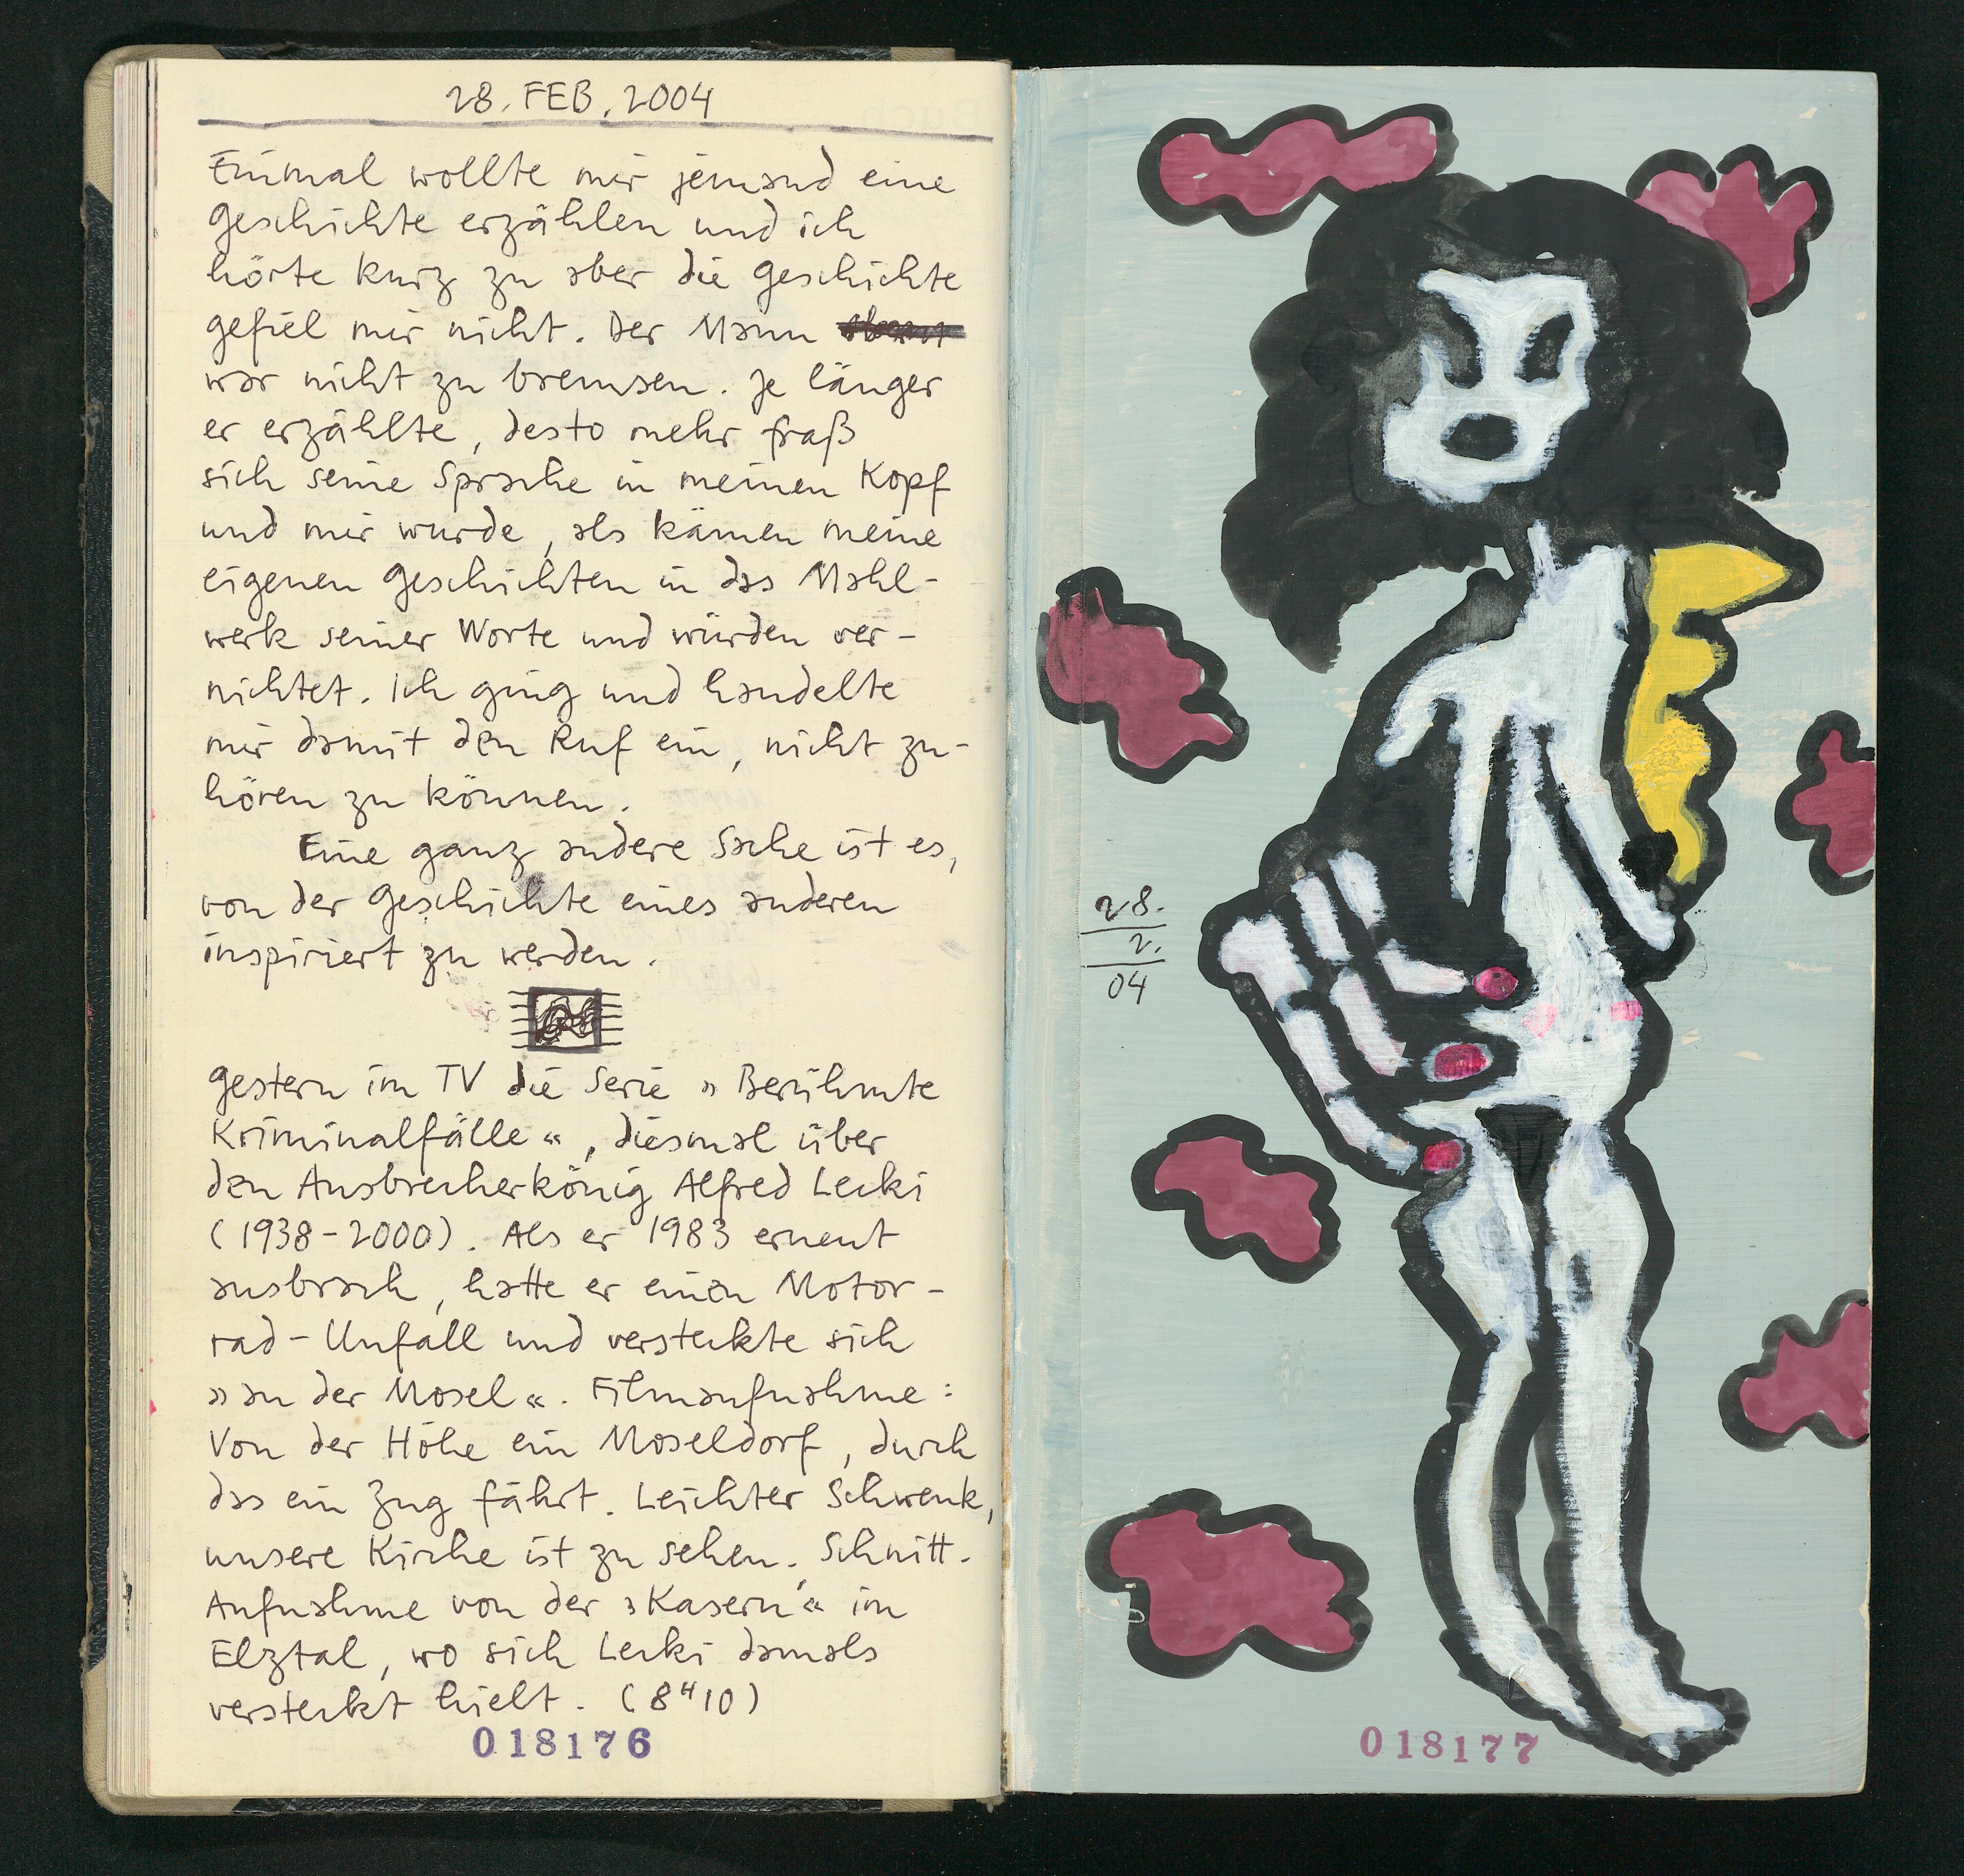 28. FEB. 2004
Einmal wollte mir jemand eine
Geschichte erzählen und ich
hörte kurz zu aber die Geschichte
gefiel mir nicht. Der Mann
war nicht zu bremsen. Je länger
er erzählte, desto mehr fraß
sich seine Sprache in meinen Kopf
und mir wurde, als kämen meine
eigenen Geschichten in das Mahl-
werk seiner Worte und würden ver-
nichtet. Ich ging und handelte
mir damit den Ruf ein, nicht zu-
hören zu können.
Eine ganz andere Sache ist es,
von der Geschichte eines anderen
inspiriert zu werden.
Gestern im TV die Serie »Berühmte
Kriminalfälle«, diesmal über
den Ausbrecherkönig Alfred Lecki
(1938-2000). Als er 1983 erneut
ausbrach, hatte er einen Motor-
rad-Unfall und versteckte sich
»an der Mosel«. Filmaufnahme:
Von der Höhe ein Moseldorf, durch
das ein Zug fährt. Leichter Schwenk,
unsere Kirche ist zu sehen. Schnitt.
Aufnahme von der »Kasern'« im
Elztal, wo sich Lecki damals
versteckt hielt. (8H10)
018176
28.
2.
04
018177